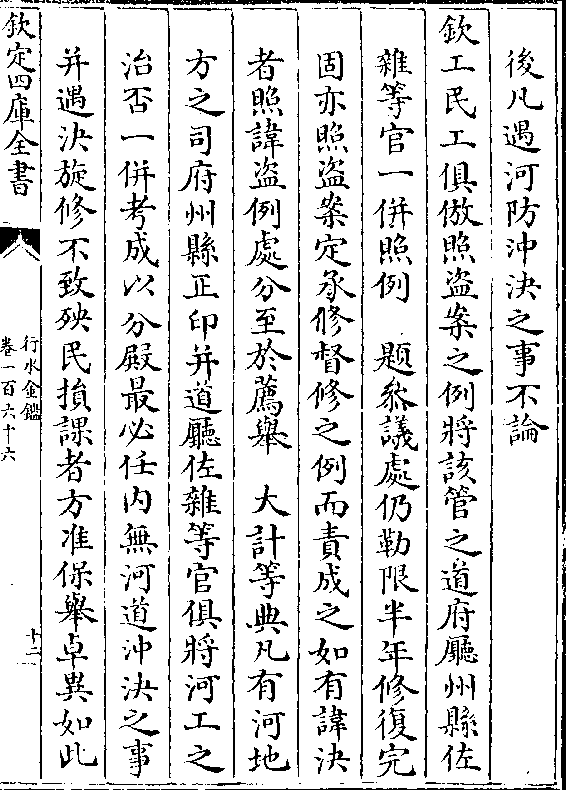 後凡遇河防沖決之事不論
欽工民工俱倣照盜案之例將該管之道府廳州縣佐
雜等官一併照例　題叅議處仍勒限半年修復完
固亦照盜案定承修督修之例而責成之如有諱決
者照諱盜例處分至於薦舉　大計等典凡有河地
方之司府州縣正印并道廳佐雜等官俱將河工之
治否一併考成以分殿最必任内無河道沖決之事
并遇決旋修不致殃民損課者方准保舉卓異如此
欽定四庫全書
行水金鑑
卷一百六十六
十二